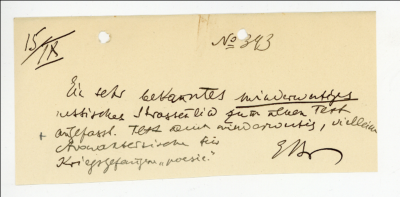 15/IX
No 343
Ein sehr bekanntes minderwertiges
russisches Strassenlied zum neuen Text
+ angepasst. Text ebenso minderwertig, vielleicht
charakteristische für
Kriegsgefangenen "poesie."